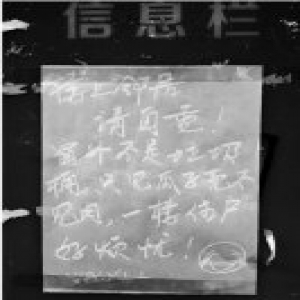 信息栏
楼上邻居
请自重!
窗下不是垃圾
桶,只见瓜子壳不
见肉,一楼住户
好烦忧!